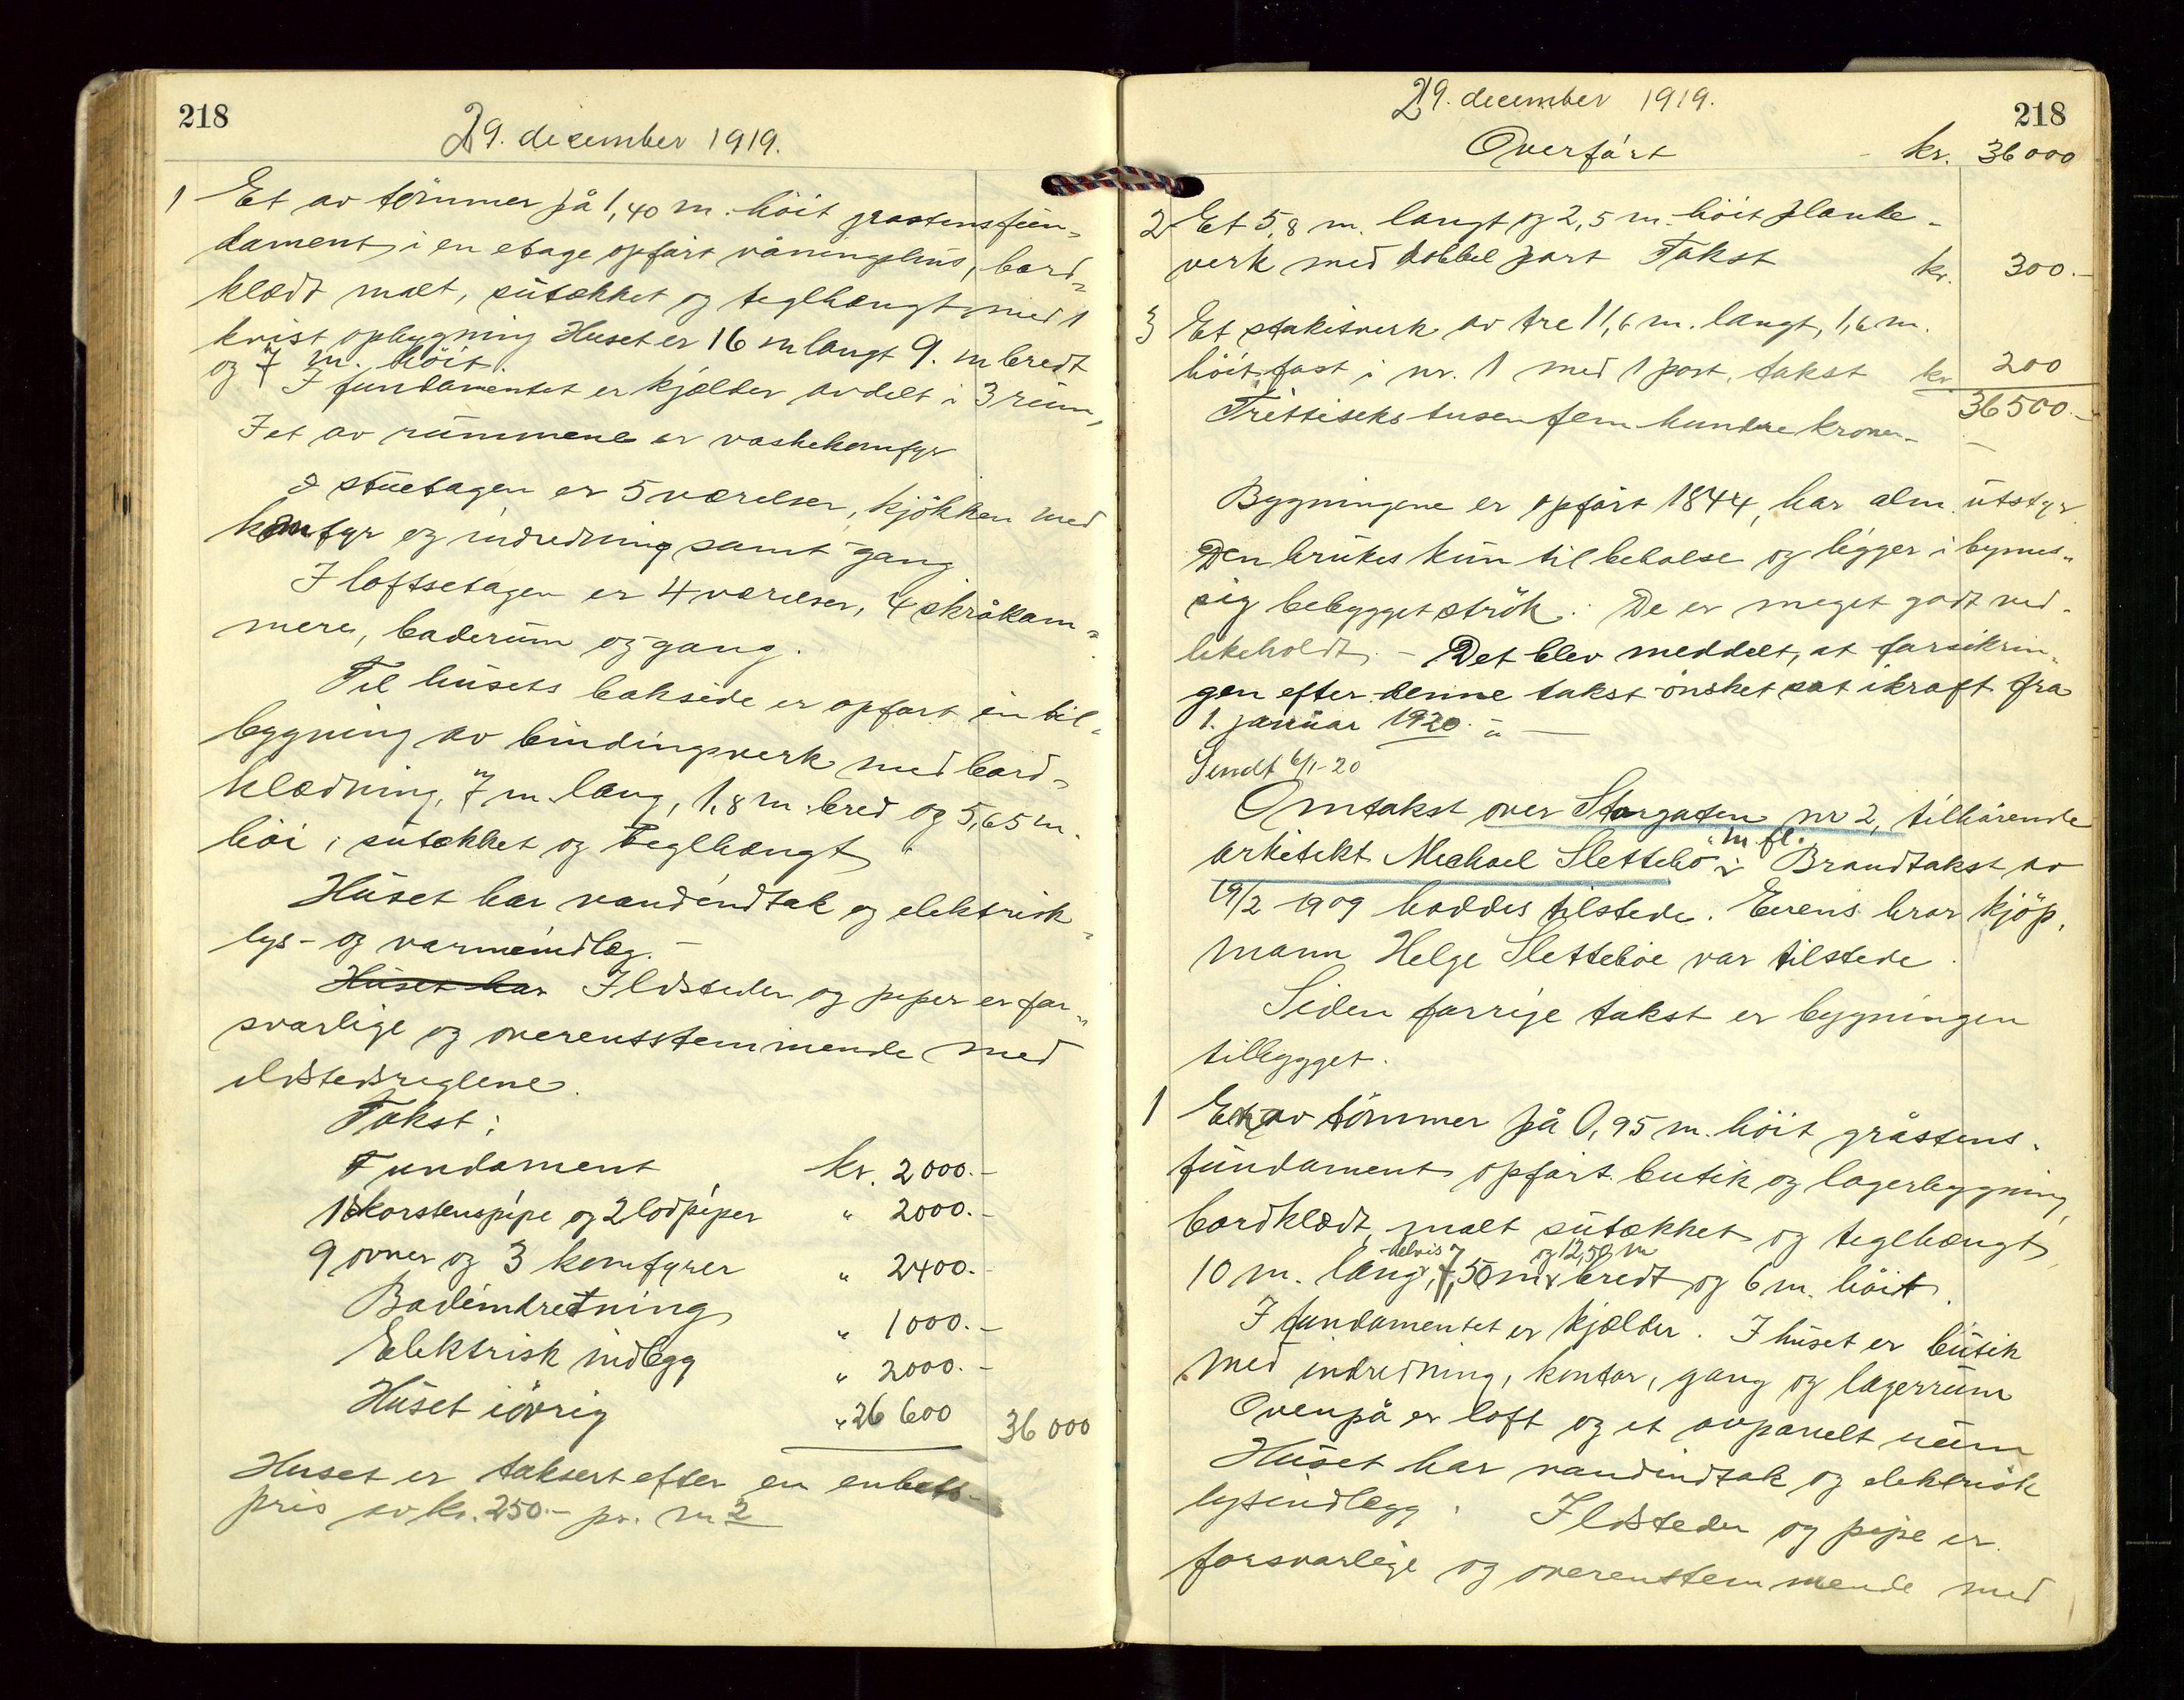 218
29. december 1919.
1 Et av tömmer på 1,40 m. höit grastensfun-
dament i en etage opført våningshus, bord-
klædt malt, sutækket og teglhængt med 1
kvist opbygning Huset er 16 m langt 9. m bredt
og 7 m. höit.
I fundamentet er kjælder avdelt i 3 rum,
I et av rummene er vaskekomfyr
I stuetagen er 5 værelser, kjökken med
komfyr og indredning samt gang
I loftsetagen er 4 værelser, 4 skråkam-
mere, baderum og gang.
Til husets bakside er opført en til-
bygning av bindingsverk med bord-
klædning, 7 m. lang, 1,8 m. bred og 5,65 m.
höi, sutækket og teglhængt
Huset har vandindtak og elektrisk
lys- og varmeindlæg. -
Huset har Ildsteder og piper er for-
svarlige og overensstemmende med
ildstedsreglene.
Takst:
Fundament kr. 2000.-
1 skorstenspipe og 2 lodpiper " 2000.-
9 ovner og 3 komfyrer " 2400.-
Badeindretning " 1000.-
Elektrisk indlegg " 2000.-
Huset iövrig " 26 600 36 000
Huset er taksert efter en enhets-
pris av kr. 250.- pr. m2
29. december 1919.
218
Overført - kr. 36 000
2 Et 5,8 m. langt og 2,5 m. höit planke-
verk med dobbel port Takst kr. 300.-
3 Et stakitverk av tre 11,6 m. langt, 1,6 m.
höit, fast i nr. 1 med 1 port, takst kr 200
36 500.-
Trettiseks tusen fem hundre kroner -
Bygningene er opført 1844, har alm. utstyr.
Den brukes kun til beboelse og ligger i bymes-
sig bebygget strök. De er meget godt ved-
likeholdt. - Det blev meddelt, at forsikrin-
gen efter denne takst ønsket sat ikraft fra
1. januar 1920. -
Sendt 6/1-20
Omtakst over Storgaten nr 2, tilhørende
m. fl.
arkitekt Michael Slettebö. Brandtakst av
19/2 1909 haddes tilstede. Eierens bror kjöp-
mann Helge Sletteböe var tilstede.
Siden forrige takst er bygningen
tilbygget.
1 Et av tömmer på 0,95 m. höit gråstens-
fundament opført butik og lagerbygning,
bordklædt, malt sutækket og teglhængt,
delvis 7 og 12,50 m
10 m. lang, 7,50 m bredt og 6 m. höit.
I fundamentet er kjælder. I huset er butik
med indredning, kontor, gang og lagerrum
Ovenpå er loft og et avpanelt rum
Huset har vandindtak og elektrisk
lysindlægg. Ildsteder og pipe er
forsvarlige og overenstemmende med